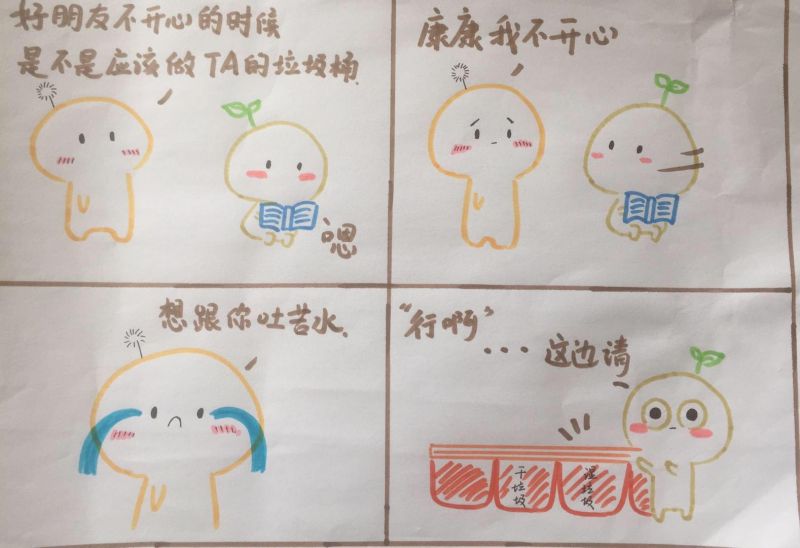 好朋友不开心的时候
是不是应该做TA的垃圾桶
嗯
康康我不开心
想跟你吐苦水
"行啊"
...这边请
干垃圾
湿垃圾